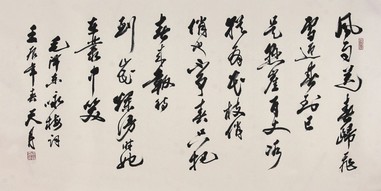 風雨送春歸飛
雪迎春到已
是懸崖百丈冰
猶有花枝俏
俏也不爭春只把
春來報待
到山花爛漫時她
在叢中笑
毛澤東詠梅詞
壬辰年春